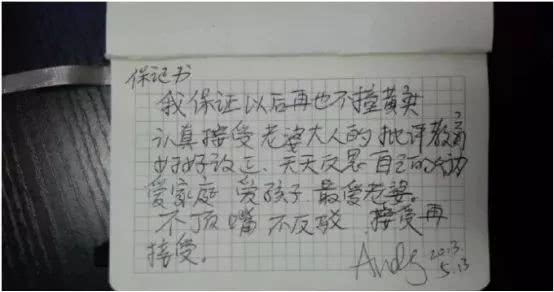 保记书
我保证以后再也不撞黄灯
认真接受老婆大人的批评教育
好好改正、天天反思自己的
爱家庭 爱孩子 最爱老婆。
不顶嘴 不反驳 接受再
接受。
Andy 2013.
5.13